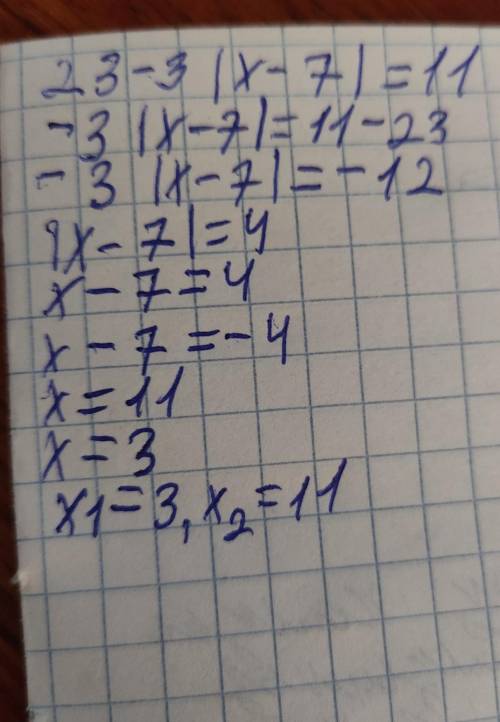 23-3|x-7|=11
-3|x-7|=11-23
-3|x-7|=-12
|x-7|=4
x-7=4
x-7=-4
x=11
x=3
x₁=3, x₂=11